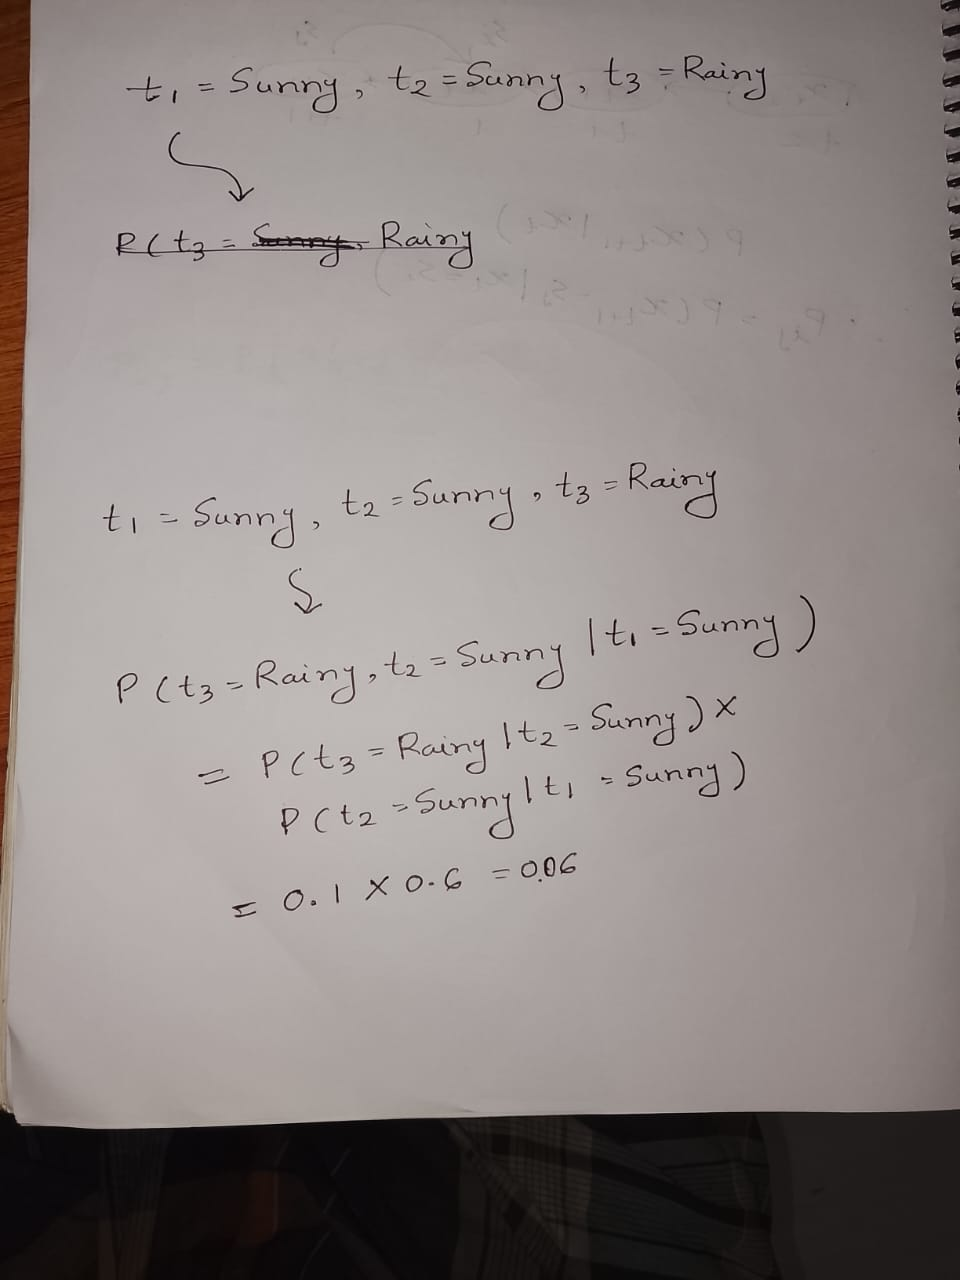 t₁ = Sunny, t₂ = Sunny, t₃ = Rainy
P(t₃ = Sunny, Rainy
t₁ = Sunny, t₂ = Sunny, t₃ = Rainy
P(t₃ = Rainy, t₂ = Sunny | t₁ = Sunny)
= P(t₃ = Rainy | t₂ = Sunny) ×
P(t₂ = Sunny | t₁ = Sunny)
= 0.1 × 0.6 = 0.06